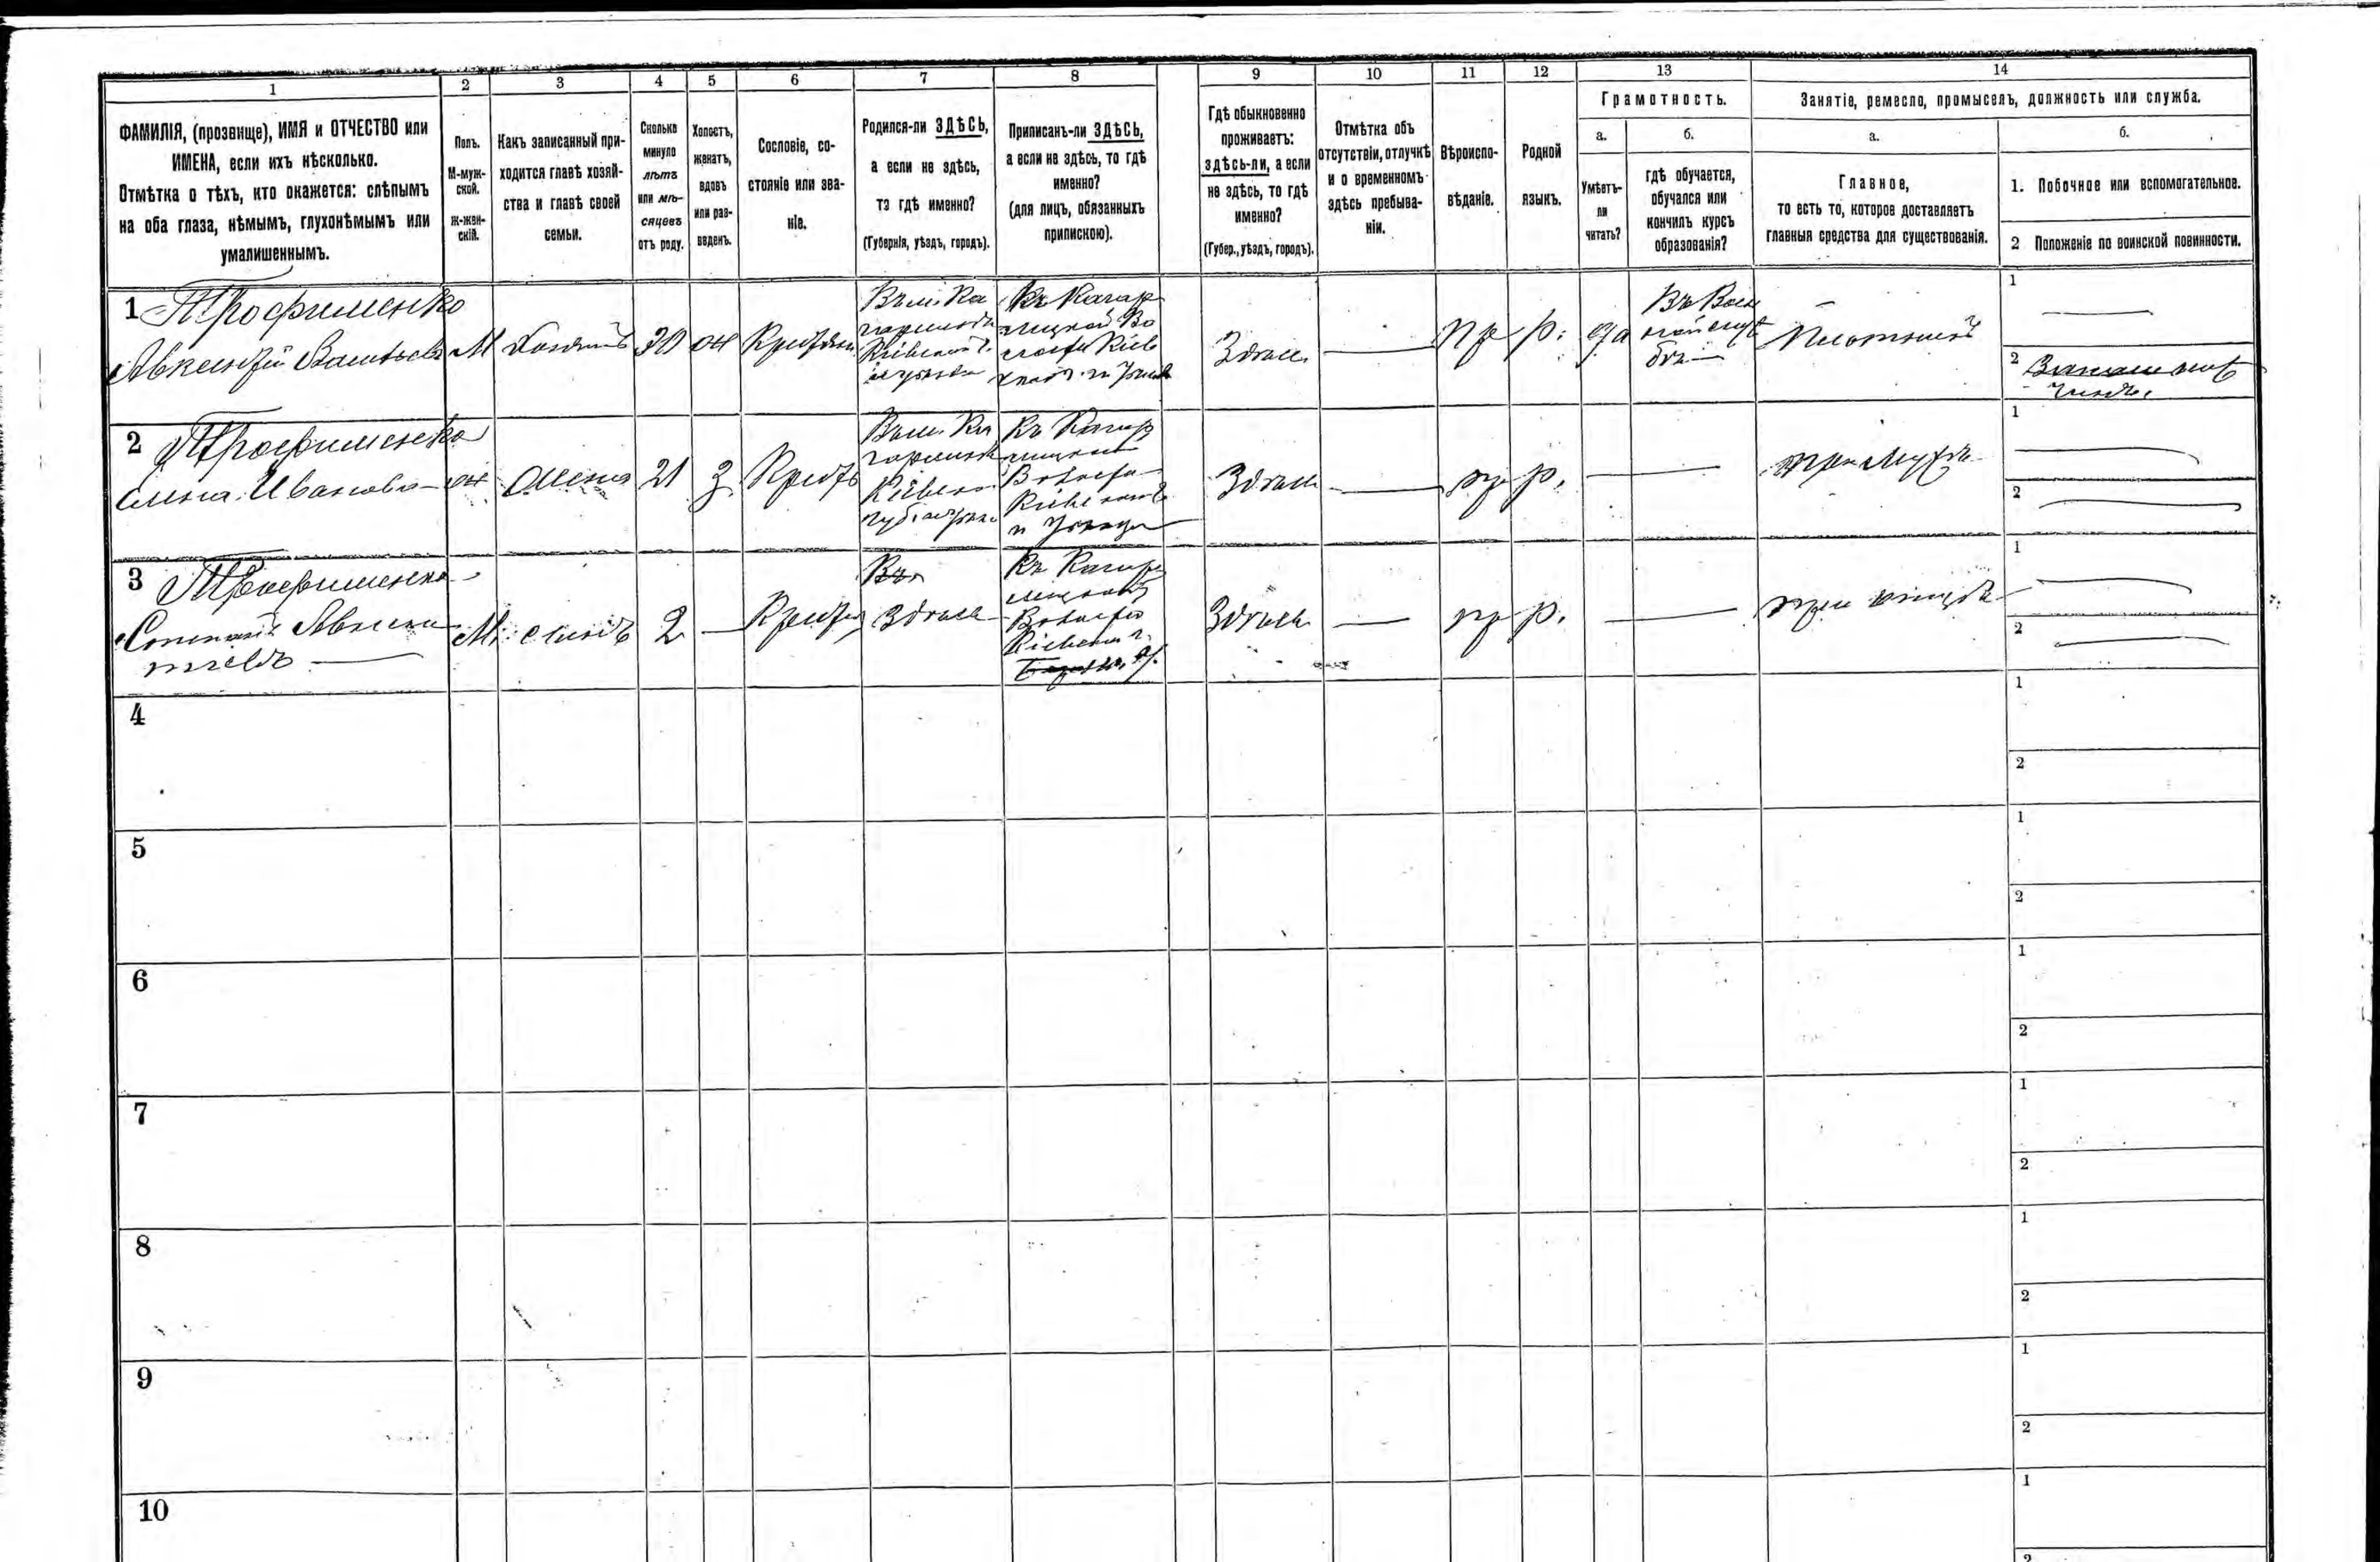 1 2 3 4 5 6 7 8 9 10 11 12 13 14
ФАМИЛІЯ, (прозвище), ИМЯ и ОТЧЕСТВО или
ИМЕНА, если ихъ нѣсколько.
Отмѣтка о тѣхъ, кто окажется: слѣпымъ
на оба глаза, нѣмымъ, глухонѣмымъ или
умалишеннымъ.
Полъ.
М-муж-
ской.
Ж-жен-
скій.
Какъ записанный при-
ходится главѣ хозяй-
ства и главѣ своей
семьи.
Сколько
минуло
лѣтъ
или мѣ-
сяцевъ
отъ роду.
Холостъ,
женатъ,
вдовъ
или раз-
веденъ.
Сословіе, со-
стояніе или зва-
ніе.
Родился-ли ЗДѢСЬ,
а если не здѣсь,
то гдѣ именно?
(Губернія, уѣздъ, городъ).
Приписанъ-ли ЗДѢСЬ,
а если не здѣсь, то гдѣ
именно?
(для лицъ, обязанныхъ
припискою).
Гдѣ обыкновенно
проживаетъ:
здѣсь-ли, а если
не здѣсь, то гдѣ
именно?
(Губер., уѣздъ, городъ).
Отмѣтка объ
отсутствіи, отлучкѣ
и о временномъ
здѣсь пребыва-
ніи.
Вѣроиспо-
вѣданіе.
Родной
языкъ.
Грамотность.
а.
Умѣетъ-
ли
читать?
б.
гдѣ обучается,
обучался или
кончилъ курсъ
образованія?
Занятіе, ремесло, промыселъ, должность или служба.
а.
Главное,
то есть то, которое доставляетъ
главныя средства для существованія.
б.
1. Побочное или вспомогательное.
2 Положеніе по воинской повинности.
1 Трофименко
Авксентій Васильевъ
М
Хозяинъ
30
ж
Крестьян
Кіевской г.
Къ Кагар
лицкой Во
лости Кіев
Здѣсь
пр
р.
да
Въ Воен
ной служ
бѣ
Плотникъ
1
2
2 Трофименко
Анна Иванова
ж
Жена
21
з
Крест
Къ Кагар
лицкой
Волости
Кіевской г
Здѣсь
пр
р.
при мужѣ
1
2
3 Трофименко
Авксен
тіевъ
М
сынъ
2
Крест
Въ
Здѣсь
Къ Кагар
лицкой
Волости
Кіевской г.
Здѣсь
пр
р.
при отцѣ
1
2
4
1
2
5
1
2
6
1
2
7
1
2
8
1
2
9
1
2
10
1
2